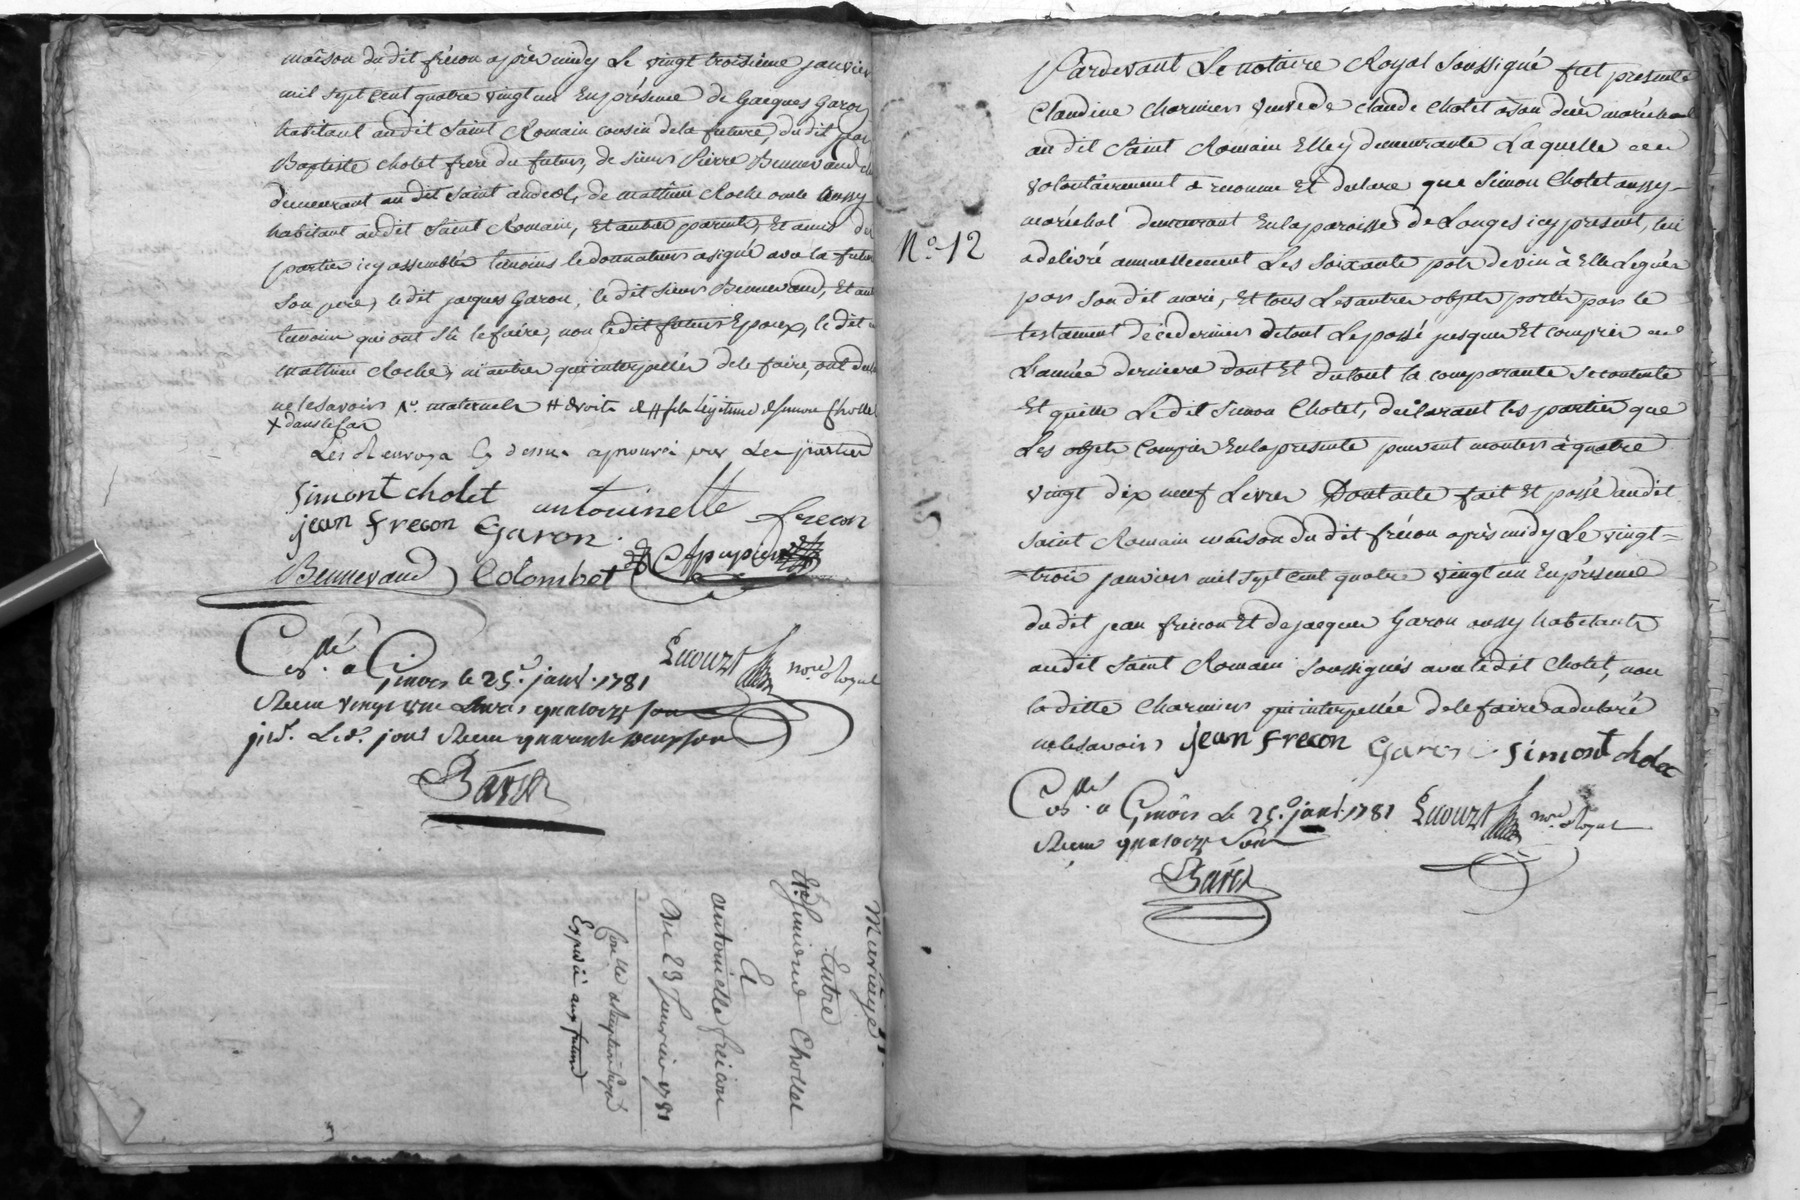 maison du dit frécon après midy Le vingt troisième janvier
mil sept Cent quatre vingt un En présence de Jacques Garon
habitant au dit Saint Romain cousin de la future, du dit jean
Baptiste Cholet frere du futur, de sieur Pierre Bennevaud
demeurant au dit Saint andeol, de mathieu Roche oncle aussy
habitant au dit Saint Romain, Et autres parents, Et amis des
parties icy assemblés temoins le donnateur a signé avec la future
son pere, le dit jacques Garon, le dit sieur Bennevaud, Et autres
temoins qui ont sû le faire, non le dit futur Epoux, le dit
mathieu Roche, ni autres qui interpellés de le faire, ont déclaré
ne le savoir maternels # droits # fils légitime de simon Chollet
x dans le cas
Les Renvoys Cy dessus aprouvés par Les parties
Simont cholet antoinette frecon
jean frecon Garon
Bennevaud Colombet
Con.lé a Givors le 25.e janv. 1781
Recu vingt une Livres quatorze sous
Led. jour Recu quarante neuf sous
not.re Royal
Baret
Mariage
Entre
Simond Chollet
Et
antoinette freicon
Du 23 Janvier 1781
Expédié aux futurs
N.o 12
Pardevant Le notaire Royal Soussigné fut presente
Claudine Charmier veuve de Claude Cholet a son décès maréchal
au dit Saint Romain Elle y demeurante Laquelle
volontairement a reconnu Et declare que Simon Cholet aussy
maréchal demeurant En la paroisse de Longes icy present, lui
a delivré annuellement Les Soixante pots de vin à Elle Legués
par son dit mari, Et tous Les autres objets portés par le
testament de ce dernier de tout Le passé jusques Et compris
L'année derniere dont Et du tout la comparante se contente
Et quitte Le dit Simon Cholet, déclarant les parties que
Les objets Compris En la presente peuvent monter à quatre
vingt dix neuf Livres Dont acte fait Et passé au dit
Saint Romain maison du dit frécon après midy Le vingt=
trois janvier mil sept Cent quatre vingt un En présence
du dit jean frécon Et de jacques Garon aussy habitants
au dit Saint Romain Soussignés avec le dit Cholet, non
la ditte Charmier qui interpellée de le faire a declaré
ne le savoir jean frecon Garon Simont cholet
Con.lé a Givors Le 25.e janv. 1781 not.re Royal
Recu quatorze Sous
Baret